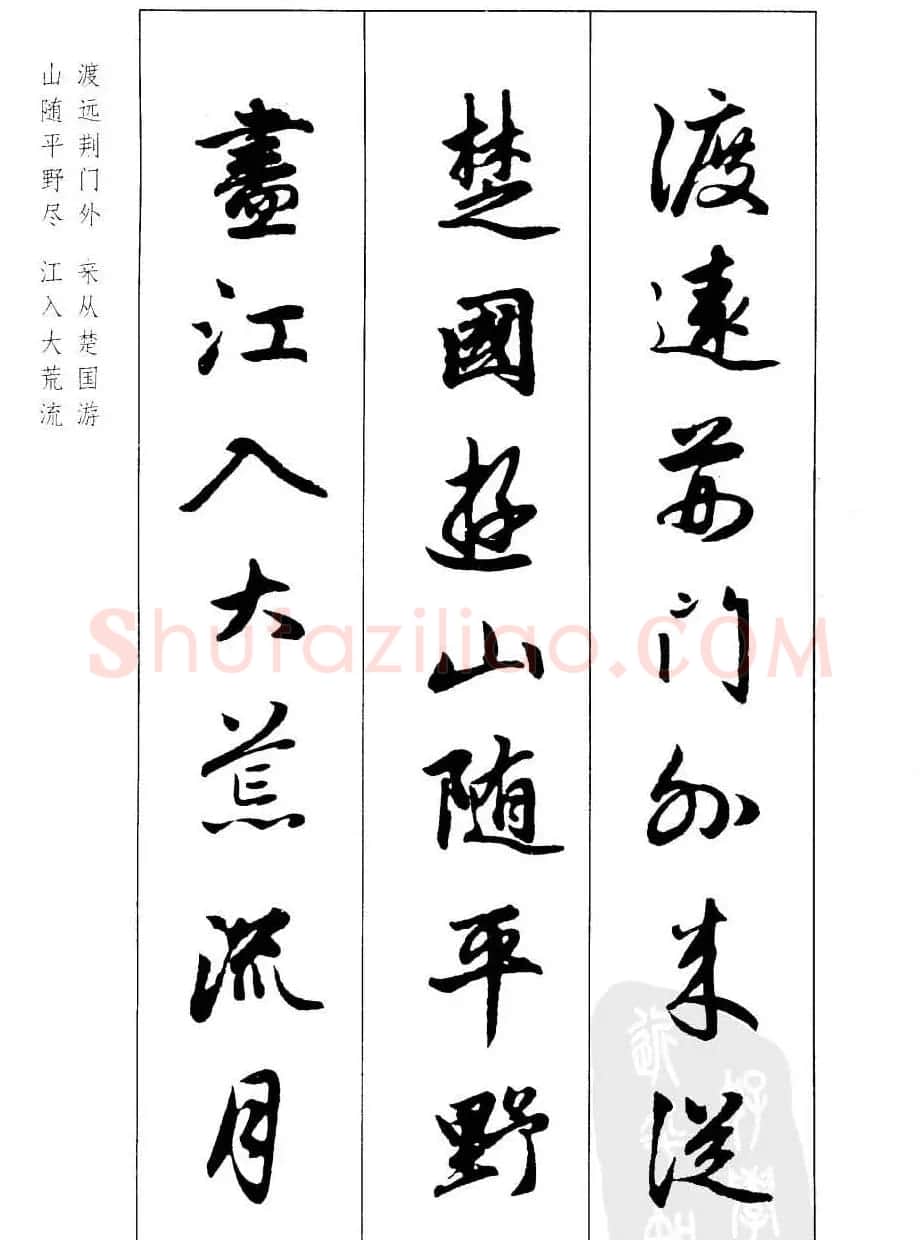 渡遠荆門外来從
楚國遊山随平野
盡江入大荒流月
渡远荆门外 来从楚国游
山随平野尽 江入大荒流
Shufaziliao.COM